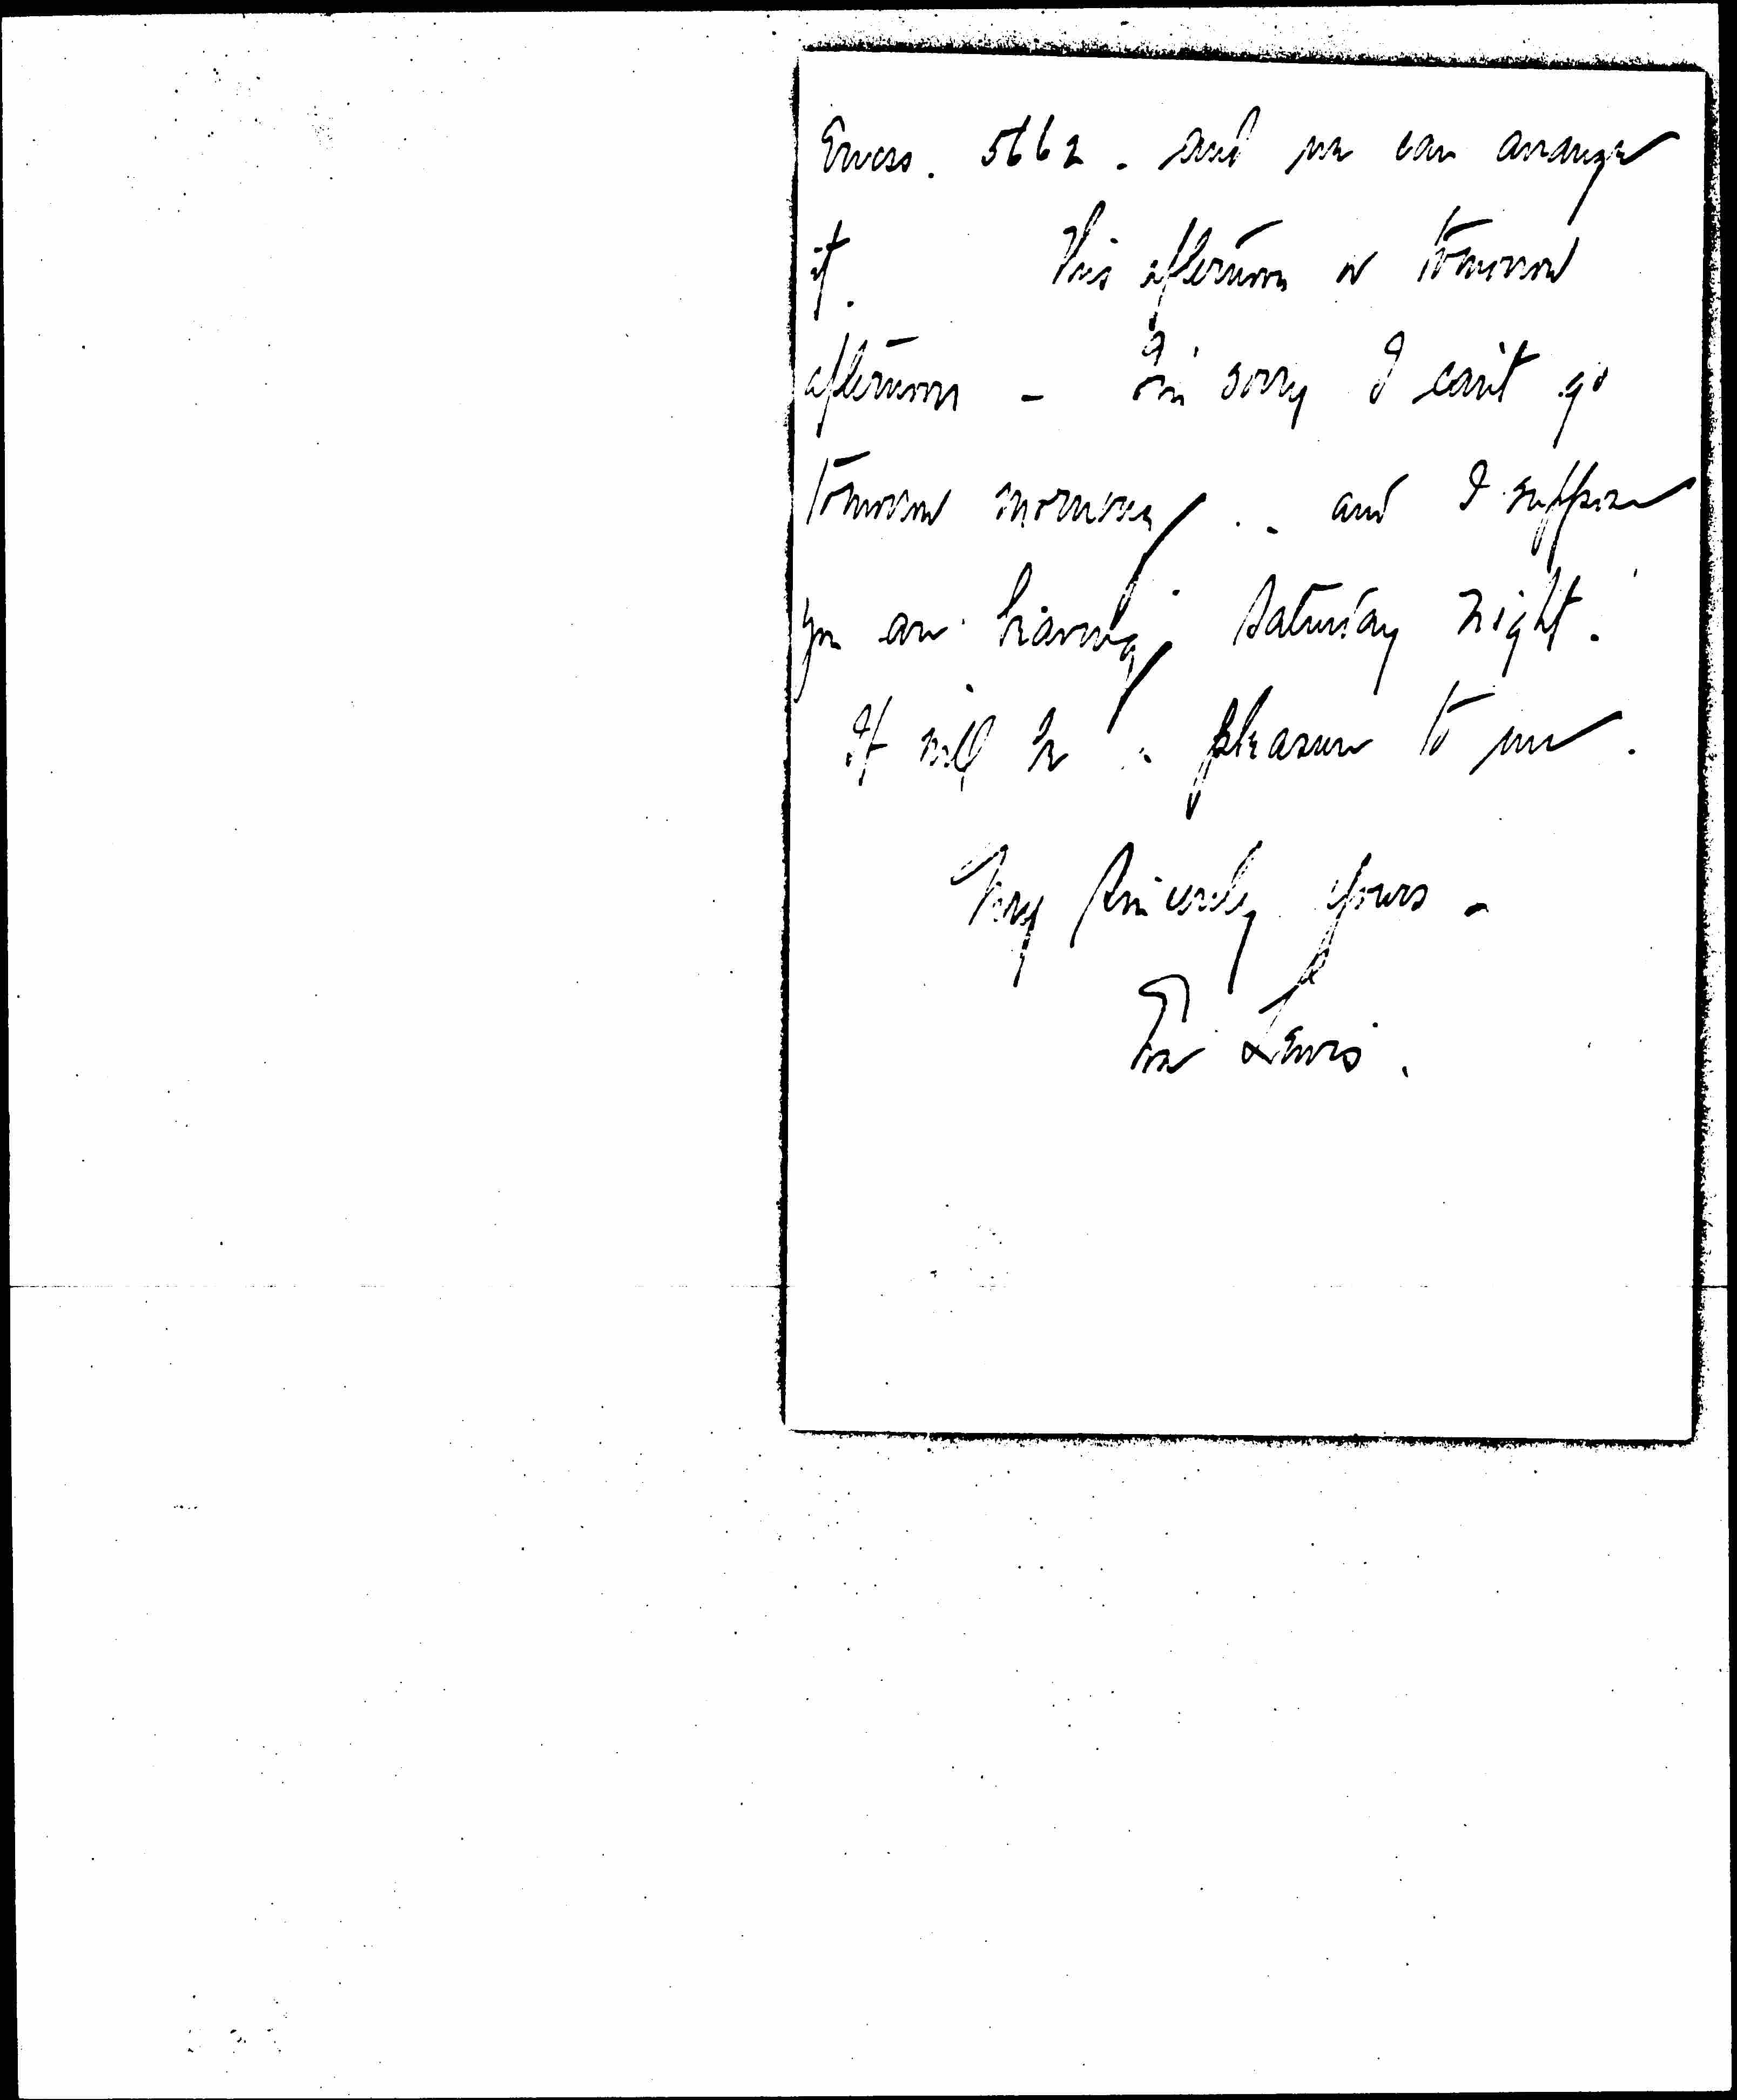 5662. and we can arrange
it. This afternoon or tomorrow
afternoon - I'm sorry I can't go
tomorrow morning .. and I suppose
you are leaving Saturday night.
It will be a pleasure to me.
Very Sincerely Yours -
Lewis.